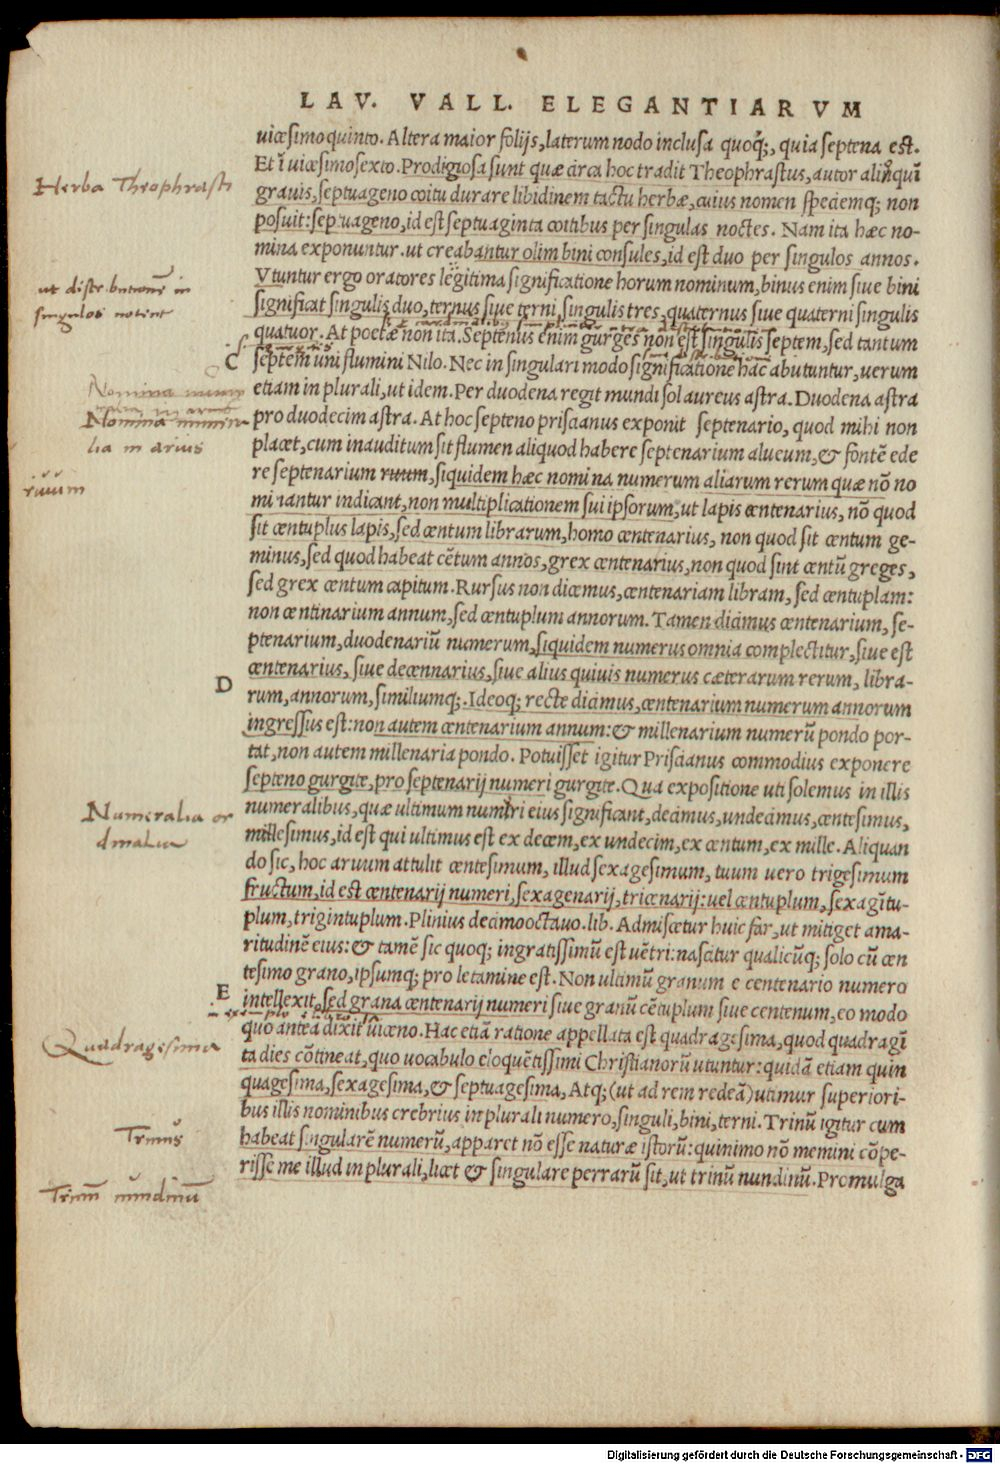 LAV. VALL. ELEGANTIARVM
uicesimoquinto. Altera maior folijs, laterum nodo inclusa quoq;, quia septena est.
Et ĩ uicesimosexto. Prodigiosa sunt quæ circa hoc tradit Theophrastus, autor alioquĩ
Herba Theophrasti
grauis, septuageno coitu durare libidinem tactu herbæ, cuius nomen speciemq; non
posuit: septuageno, id est septuaginta coitibus per singulas noctes. Nam ita hæc no-
mina exponuntur. ut creabantur olim bini consules, id est duo per singulos annos.
Vtuntur ergo oratores legitima significatione horum nominum, binus enim siue bini
ut distributionē in
singulos notent
significat singulis duo, ternus siue terni, singulis tres, quaternus siue quaterni singulis
quatuor. At poetæ non ita. Septenus enim gurges non est singulis septem, sed tantum
C
septem uni flumini Nilo. Nec in singulari modo significatione hac abutuntur, uerum
etiam in plurali, ut idem. Per duodena regit mundi sol aureus astra. Duodena astra
Nomina numera
lia in arius
pro duodecim astra. At hoc septeno priscianus exponit septenario, quod mihi non
placet, cum inauditum sit flumen aliquod habere septenarium alueum, & fontē ede
riuum
re septenarium ruum, siquidem hæc nomina numerum aliarum rerum quæ nō no
minantur indicant, non multiplicationem sui ipsorum, ut lapis centenarius, nō quod
sit centuplus lapis, sed centum librarum, homo centenarius, non quod sit centum ge-
minus, sed quod habeat cētum annos, grex centenarius, non quod sint centū greges,
sed grex centum capitum. Rursus non dicemus, centenariam libram, sed centuplam:
non centinarium annum, sed centuplum annorum. Tamen dicimus centenarium, se-
ptenarium, duodenariū numerum, siquidem numerus omnia complectitur, siue est
D
centenarius, siue decennarius, siue alius quiuis numerus cæterarum rerum, libra-
rum, annorum, similiumq;. Ideoq; recte dicimus, centenarium numerum annorum
ingressus est: non autem centenarium annum: & millenarium numerū pondo por-
tat, non autem millenaria pondo. Potuisset igitur Priscianus commodius exponere
septeno gurgite, pro septenarij numeri gurgite. Qua expositione uti solemus in illis
Numeralia or
dinalia
numeralibus, quæ ultimum numeri eius significant, decimus, undecimus, centesimus,
millesimus, id est qui ultimus est ex decem, ex undecim, ex centum, ex mille. Aliquan
do sic, hoc aruum attulit centesimum, illud sexagesimum, tuum uero trigesimum
fructum, id est centenarij numeri, sexagenarij, tricenarij: uel centuplum, sexagĩtu-
plum, trigintuplum. Plinius decimooctauo. lib. Admiscetur huic far, ut mitiget ama-
ritudinē eius: & tamē sic quoq; ingratissimū est uētri: nascitur qualicūq; solo cū cen
tesimo grano, ipsumq; pro letamine est. Non ultimū granum e centenario numero
E
intellexit, sed grana centenarij numeri siue granū cētuplum siue centenum, eo modo
quo antea dixit uiceno. Hac etiā ratione appellata est quadragesima, quod quadragĩ
Quadragesima
ta dies cōtineat, quo uocabulo eloquētissimi Christianorū utuntur: quidā etiam quin
quagesima, sexagesima, & septuagesima, Atq; (ut ad rem redeā) utimur superiori-
bus illis nominibus crebrius in plurali numero, singuli, bini, terni. Trinū igitur cum
Trinus
habeat singularē numerū, apparet nō esse naturæ istorū: quinimo nō memini cōpe-
risse me illud in plurali, licet & singulare perrarū sit, ut trinū nundinū. Promulga
Trinū nundinū
Digitalisierung gefördert durch die Deutsche Forschungsgemeinschaft - DFG